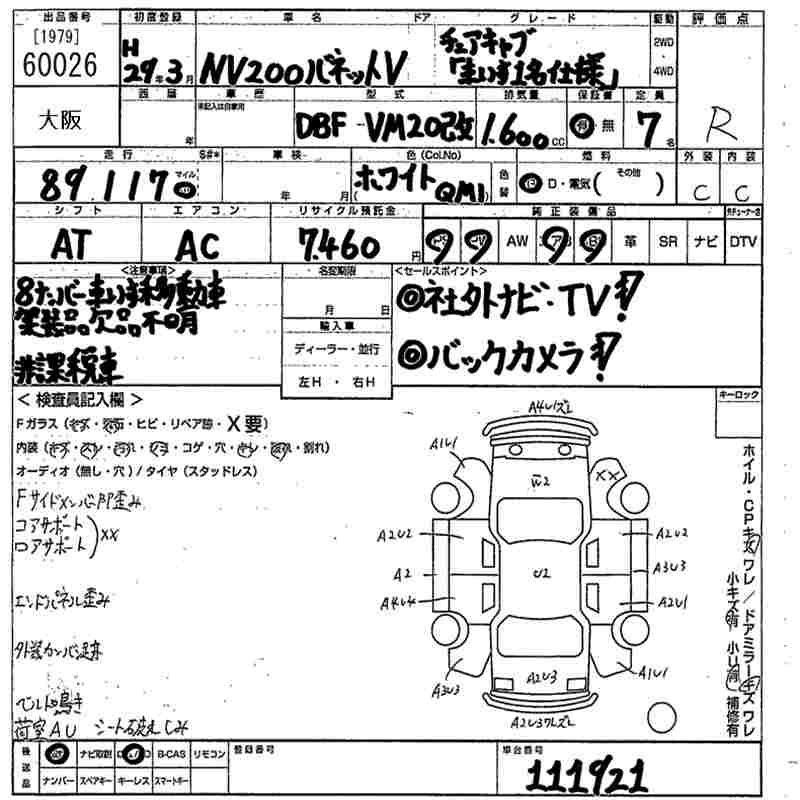 出品番号 初度登録 車名 ドア グレード 駆動 評価点
[1979]
60026
H
29年3月 NV200バネットV チェアキャブ
「車いす1名仕様」
2WD
・
4WD
R
大阪
西暦 車歴 型式 排気量 保証書 定員
未記入は自家用
年 DBF-VM20改 1.600cc 有・無 7名
走行 S#* 車検 色(Col.No) 燃料 外装 内装
マイル
89.117 年 月 ホワイト (QM1) 色替 D・電気( その他 ) C C
シフト エアコン リサイクル預託金 純正装備品
AT AC 7.460円 AW 革 SR ナビ DTV
<注意事項> 名変期限 <セールスポイント>
8ナンバー車いす移動車 月 日 ◎社外ナビ・TV!
架装品欠品不明 輸入車
ディーラー・並行 ◎バックカメラ!
非課税車 左H・右H
<検査員記入欄> キーロック
Fガラス(キズ・飛石・ヒビ・リペア跡・X要)
内装(キズ・スレ・汚れ・ヌケ・コゲ・穴・割れ)
オーディオ(無し・穴)/タイヤ(スタッドレス)
Fサイドメンバー凹歪み
コアサポート
ロアサポート )XX
エンドパネル歪み
外装カンバン跡
ベルト鳴き
荷室AU シート破れしみ
A4U1ズレ
A1U1
XX
W2
A2U2
A2U2
U2
A2
A3U3
A4U4
A2U1
A3U3
A2U3
A1U1
A2U3ワレズレ
ホイル・CPキズ ワレ/ドアミラーキズ ワレ
小キズ有 小U有 補修有
後送品 ナビ取説 B-CAS リモコン 登録番号 車台番号
ナンバー スペアキー キーレス スマートキー 111921